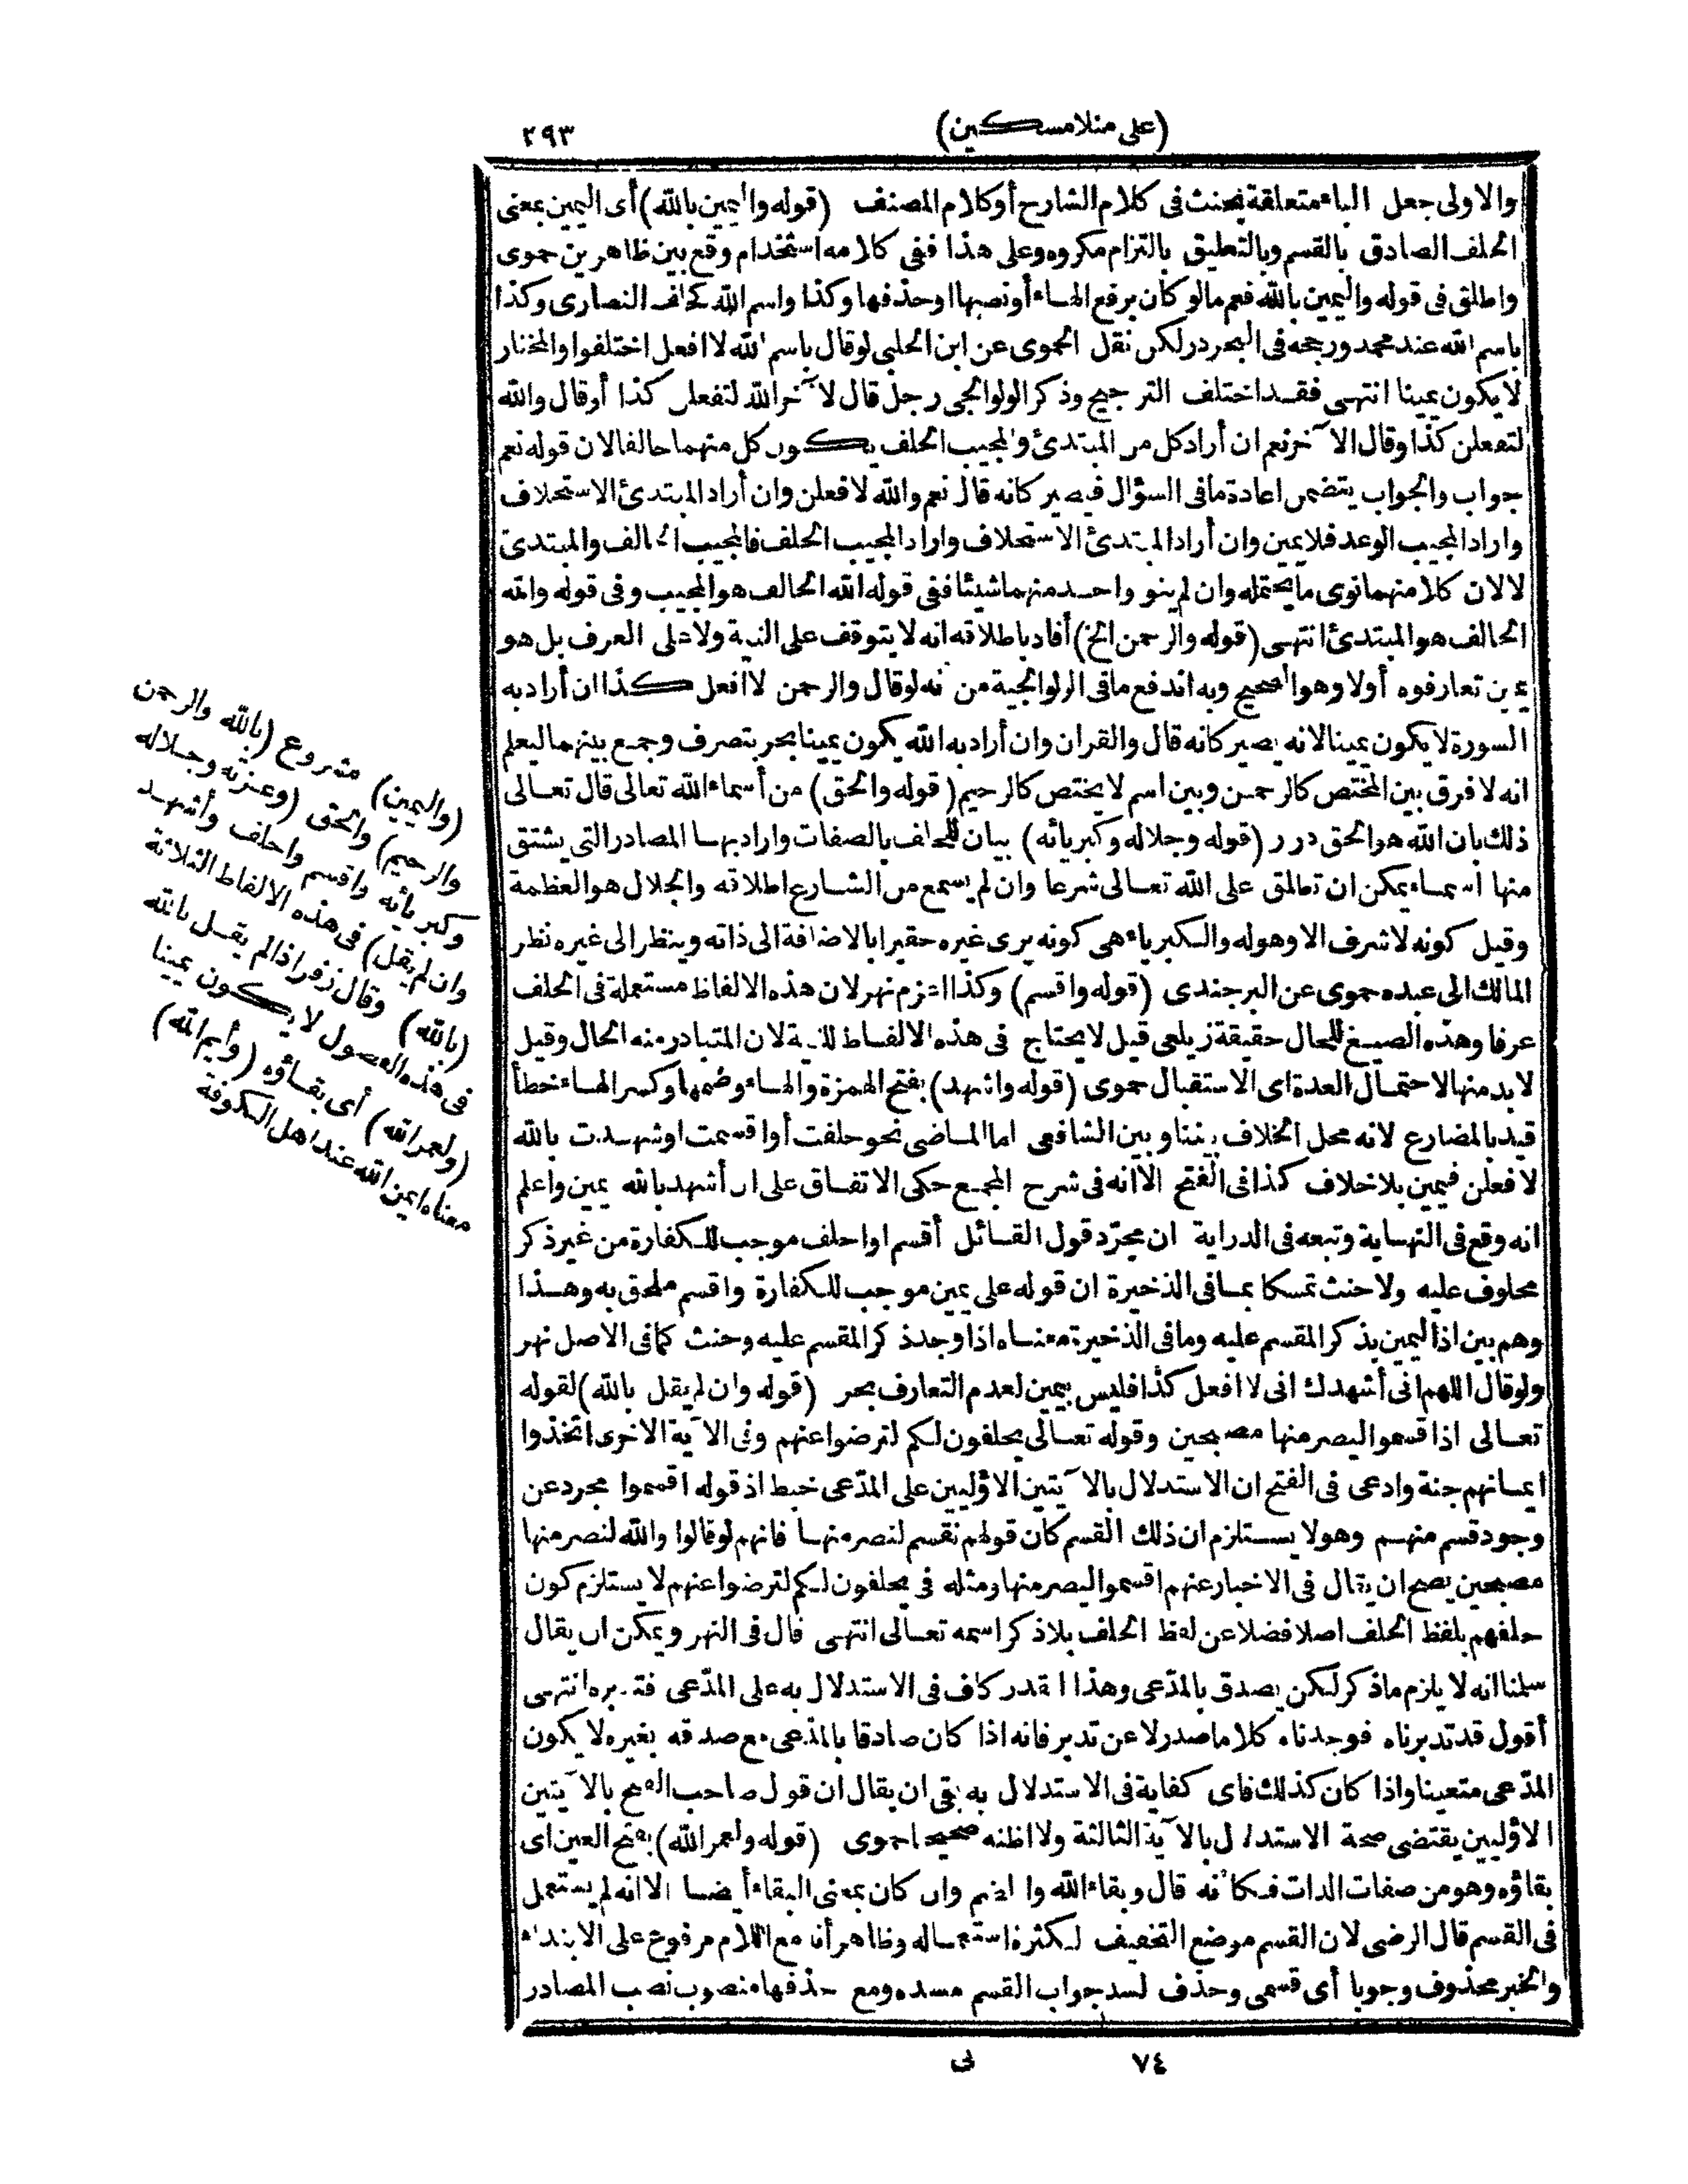 (على منلا مسكين) ٢٩٣
والاولى جعل الباء متعلقة بحنث فى كلام الشارح أو كلام المصنف (قوله واليمين بالله) أى اليمين بمعنى
الحلف الصادق بالقسم وبالتعليق بالتزام مكروه وعلى هذا ففى كلامه استخدام وقع بين ظاهرين حموى
واطلق فى قوله واليمين بالله فعم مالو كان برفع الهاء أو نصبها او حذفها وكذا واسم الله كحلف النصارى وكذا
باسم الله عند محمد ورجحه فى البحر در لكن نقل الحموى عن ابن الحلبى لو قال باسم الله لا افعل اختلفوا والمختار
لا يكون يمينا انتهى فقد اختلف الترجيح وذكر الولوالجى رجل قال لآخر الله لتفعلن كذا أو قال والله
لتفعلن كذا وقال الآخر نعم ان أراد كل من المبتدئ والمجيب الحلف يكون كل منهما حالفا لان قوله نعم
جواب والجواب يتضمن اعادة ما فى السؤال فيصير كانه قال نعم والله لافعلن وان أراد المبتدئ الاستحلاف
واراد المجيب الوعد فلا يمين وان أراد المبتدئ الاستحلاف واراد المجيب الحلف فالمجيب الحالف والمبتدئ
لا لان كلا منهما نوى ما يحتمله وان لم ينو واحد منهما شيئا ففى قوله الله الحالف هو المجيب وفى قوله والله
الحالف هو المبتدئ انتهى (قوله والرحمن الخ) أفاد باطلاقه انه لا يتوقف على النية ولا على العرف بل هو
يمين تعارفوه أولا وهو الصحيح وبه اندفع ما فى الولوالجية من انه لو قال والرحمن لا افعل كذا ان أراد به
السورة لا يكون يمينا لانه يصير كانه قال والقران وان أراد به الله يكون يمينا بحر بتصرف وجمع بينهما ليعلم
انه لا فرق بين المختص كالرحمن وبين اسم لا يختص كالرحيم (قوله والحق) من أسماء الله تعالى قال تعالى
ذلك بان الله هو الحق درر (قوله وجلاله وكبريائه) بيان للحلف بالصفات واراد بها المصادر التى يشتق
منها اسماء يمكن ان تطلق على الله تعالى شرعا وان لم يسمع من الشارع اطلاقه والجلال هو العظمة
وقيل كونه لا شرف الا وهو له والكبرياء هى كونه يرى غيره حقيرا بالاضافة الى ذاته وينظر الى غيره نظر
المالك الى عبده حموى عن البرجندى (قوله واقسم) وكذا اعزم نهر لان هذه الالفاظ مستعملة فى الحلف
عرفا وهذه الصيغ للحال حقيقة زيلعى قيل لا يحتاج فى هذه الالفاظ للنية لان المتبادر منه الحال وقيل
لا بد منها لاحتمال العدة اى الاستقبال حموى (قوله واشهد) بفتح الهمزة والهاء وضمها وكسر الهاء خطأ
قيد بالمضارع لانه محل الخلاف بيننا وبين الشافعى اما الماضى نحو حلفت أو اقسمت او شهدت بالله
لافعلن فيمين بلا خلاف كذا فى الفتح الا انه فى شرح المجمع حكى الاتفاق على ان أشهد بالله يمين واعلم
انه وقع فى النهاية وتبعه فى الدراية ان مجرد قول القائل أقسم او احلف موجب للكفارة من غير ذكر
محلوف عليه ولا حنث تمسكا بما فى الذخيرة ان قوله على يمين موجب للكفارة واقسم ملحق به وهذا
وهم بين اذ اليمين بذكر المقسم عليه وما فى الذخيرة معناه اذا وجد ذكر المقسم عليه وحنث كما فى الاصل نهر
ولو قال اللهم انى أشهدك انى لا افعل كذا فليس بيمين لعدم التعارف بحر (قوله وان لم يقل بالله) لقوله
تعالى اذ اقسموا ليصرمنها مصبحين وقوله تعالى يحلفون لكم لترضوا عنهم وفى الآية الاخرى اتخذوا
ايمانهم جنة وادعى فى الفتح ان الاستدلال بالآيتين الاوليين على المدّعى خبط اذ قوله اقسموا مجرد عن
وجود قسم منهم وهو لا يستلزم ان ذلك القسم كان قولهم نقسم لنصرمنها فانهم لو قالوا والله لنصرمنها
مصبحين يصح ان يقال فى الاخبار عنهم اقسموا ليصرمنها ومثله فى يحلفون لكم لترضوا عنهم لا يستلزم كون
حلفهم بلفظ الحلف اصلا فضلا عن لفظ الحلف بلا ذكر اسمه تعالى انتهى قال فى النهر ويمكن ان يقال
سلمنا انه لا يلزم ما ذكر لكن يصدق بالمدّعى وهذا القدر كاف فى الاستدلال به على المدّعى فتدبره انتهى
أقول قد تدبرناه فوجدناه كلاما صدر لا عن تدبر فانه اذا كان صادقا بالمدّعى مع صدقه بغيره لا يكون
المدّعى متعينا واذا كان كذلك فاى كفاية فى الاستدلال به بقى ان يقال ان قول صاحب الفتح بالآيتين
الاوليين يقتضى صحة الاستدلال بالآية الثالثة ولا اظنه صحيحا حموى (قوله ولعمر الله) بفتح العين اى
بقاؤه وهو من صفات الذات فكانه قال وبقاء الله والضم وان كان بمعنى البقاء أيضا الا انه لم يستعمل
فى القسم قال الرضى لان القسم موضع التخفيف لكثرة استعماله وظاهر أنه مع اللام مرفوع على الابتداء
والخبر محذوف وجوبا أى قسمى وحذف لسد جواب القسم مسده ومع حذفها منصوب نصب المصادر
(واليمين) مشروع (بالله والرحمن
والرحيم) والحق (وعزته وجلاله
وكبريائه واقسم واحلف وأشهد
وان لم يقل) فى هذه الالفاظ الثلاثة
(بالله) وقال زفر اذا لم يقل بالله
فى هذه الفصول لا يكون يمينا
(ولعمر الله) أى بقاؤه (وأيم الله)
معناه ايمن الله عند اهل الكوفة
٧٤ لى